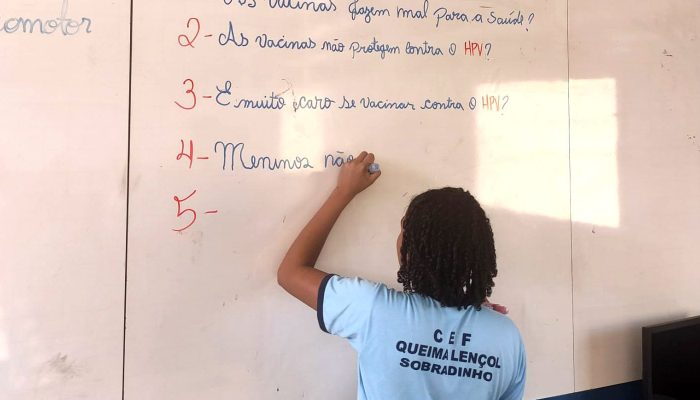 omotor
As vacinas fazem mal para a Saúde?
2- As vacinas não protegem contra o HPV?
3- É muito caro se vacinar contra o HPV?
4- Meninos não
5-
C E F
QUEIMA LENÇOL
SOBRADINHO